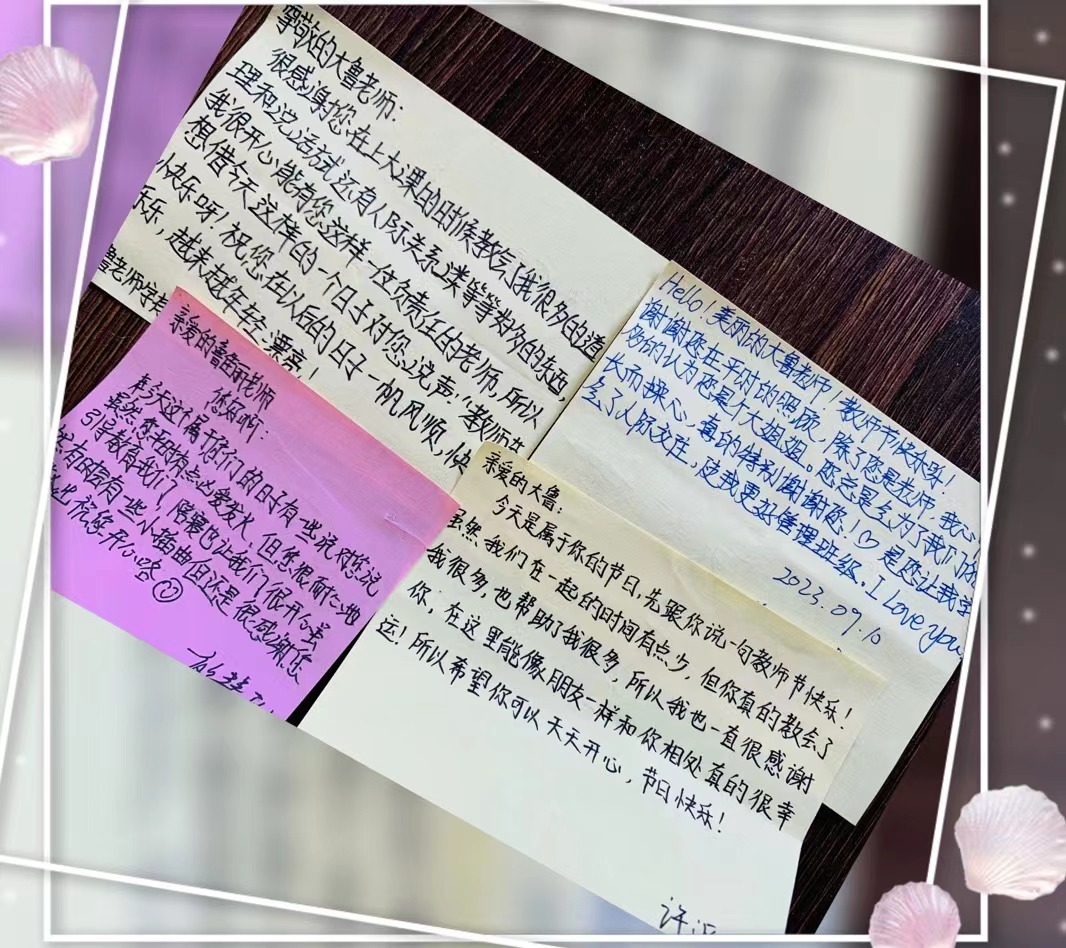 尊敬的大鲁老师：
很感谢您在上大课的时候教会了我很多的道
理和说话方式还有人际关系类等等好多的东西
我很开心能有您这样一位负责任的老师，所以
想借今天这样的一个日子对您说声，“教师节
快乐呀！祝您在以后的日子一帆风顺，快
乐，越来越年轻漂亮！
鲁老师
Hello！美丽的大鲁老师！教师节快乐呀！
谢谢您在平时的照顾，除了您是老师，我
多的认为您是个大姐姐。您总是会为了我们的
长而操心，真的特别谢谢您！♡是您让我学
会了人际交往，使我更好管理班级。I Love you
2023.09.10
亲爱的鲁老师
您好啊：
在今天这个属于您们的日子有一些说对您说
虽然您把有点爱发火 但您很耐心地
引导教育我们 陪寝也让我们很开心虽
然有时会有一些小插曲但还是很感谢您
祝您开心咯
亲爱的大鲁：
今天是属于你的节日，先跟你说一句教师节快乐！
虽然我们在一起的时间有点少，但你真的教会了
我很多，也帮助了我很多，所以我也一直很感谢
你，在这里能像朋友一样和你相处真的很幸
运！所以希望你可以天天开心，节日快乐！
许